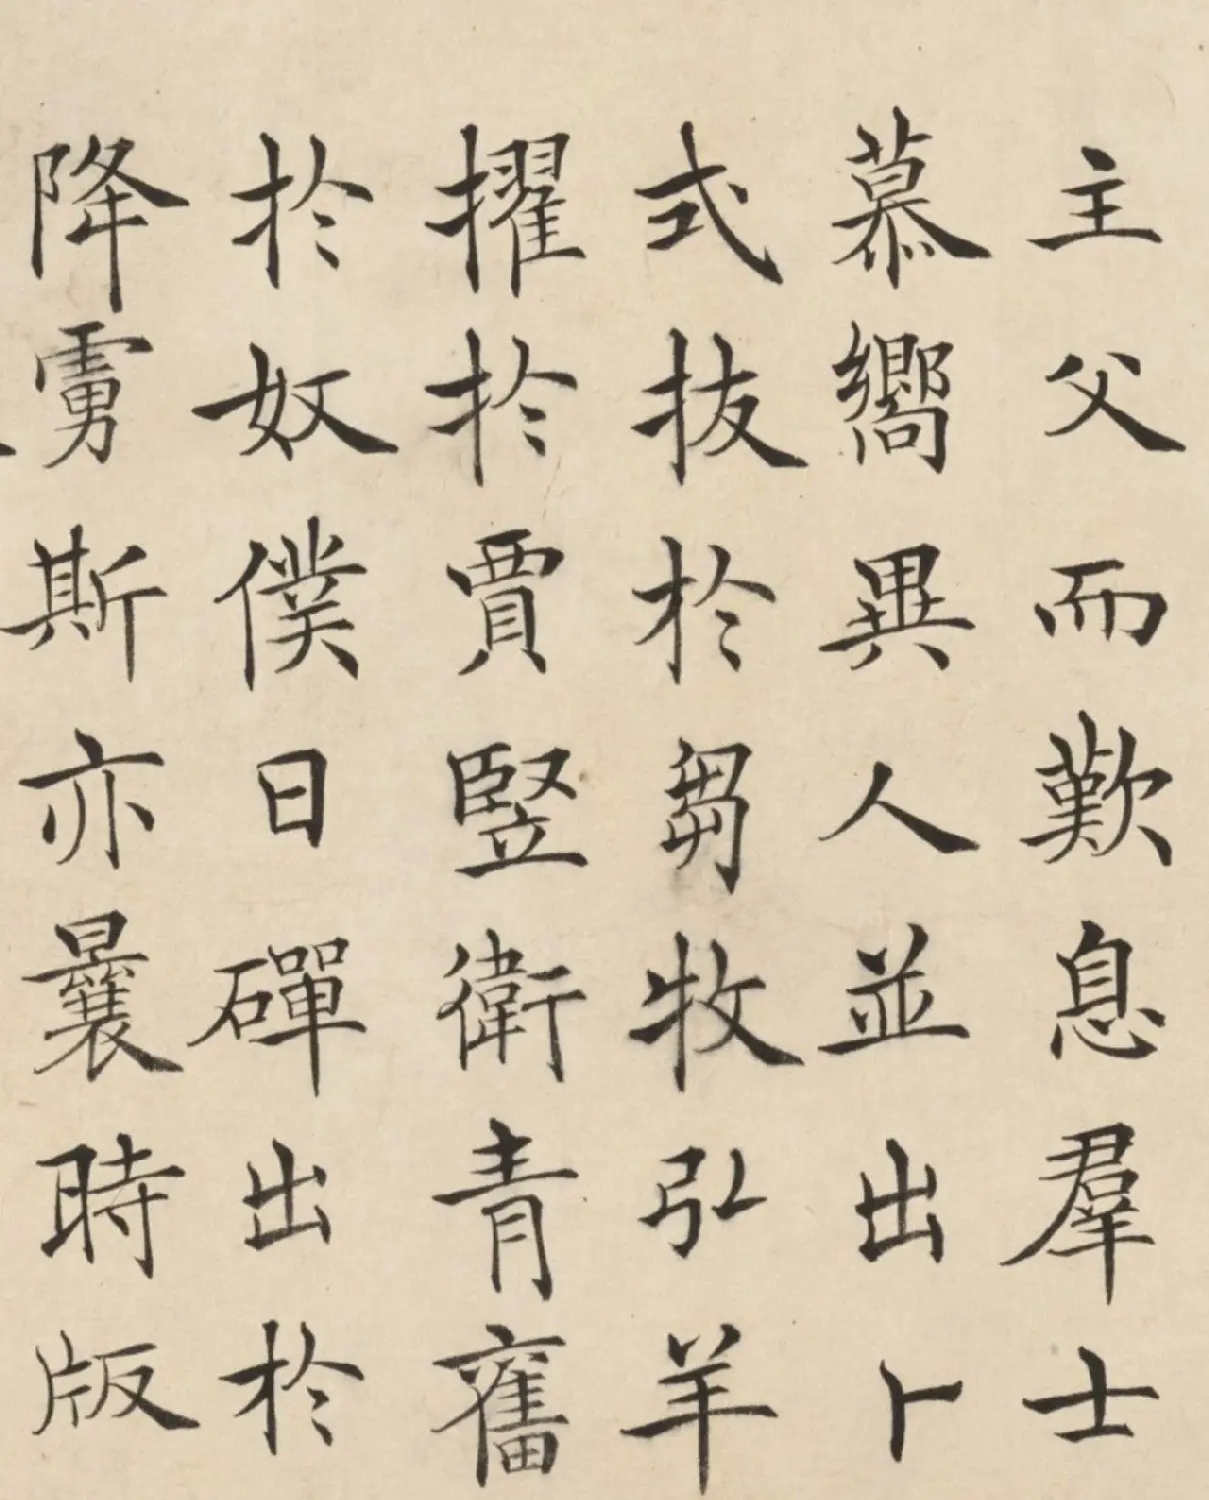 主父而歎息羣士
慕嚮異人並出卜
式拔於芻牧弘羊
擢於賈豎衛青奮
於奴僕日磾出於
降虜斯亦曩時版